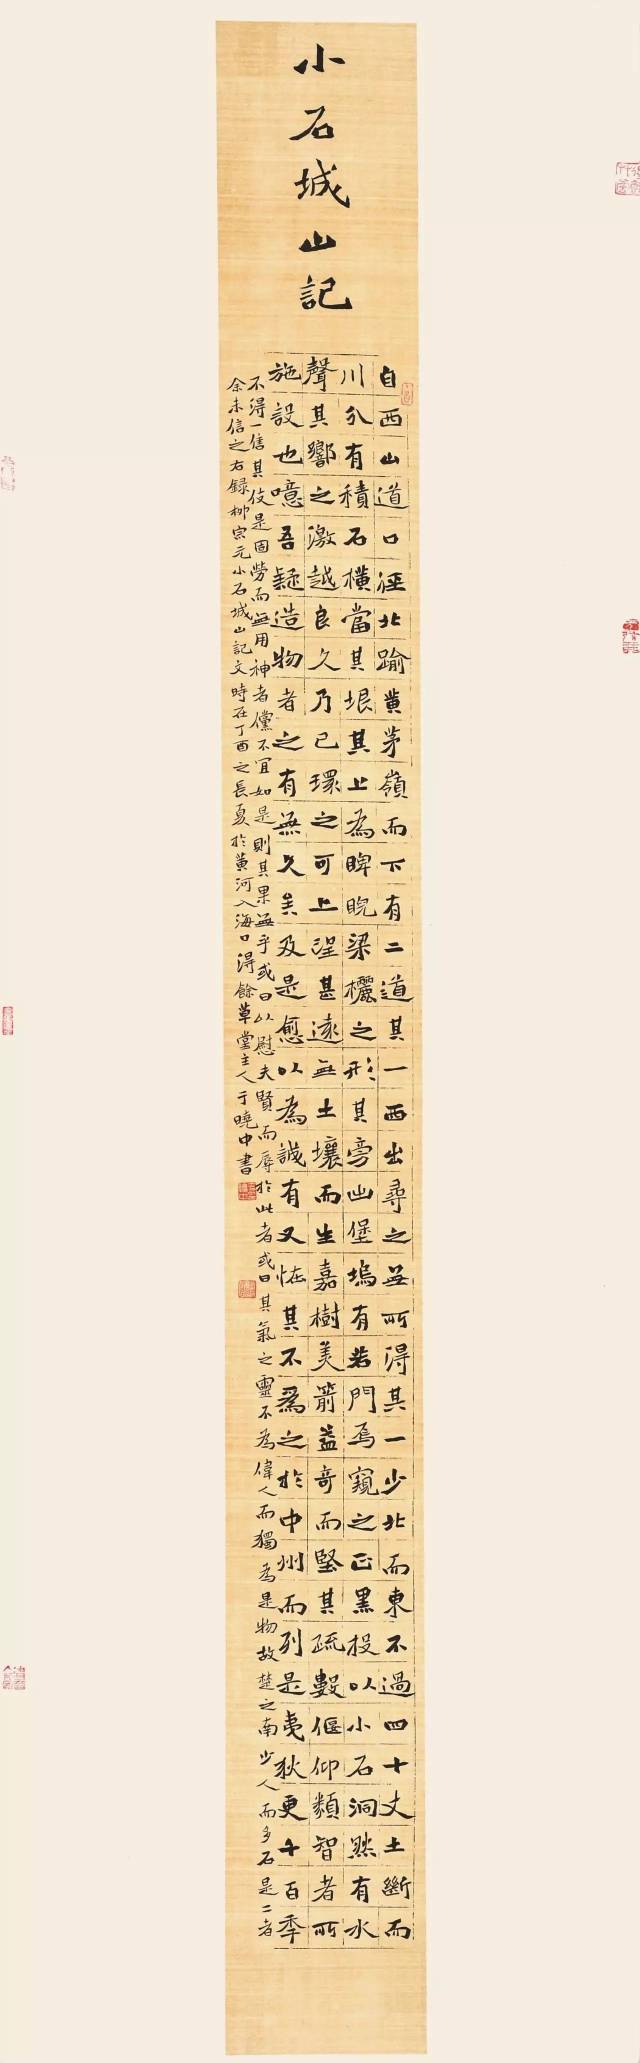 小石城山記
自西山道口逕北踰黄茅嶺而下有二道其一西出尋之無所得其一少北而東不過四十丈土斷而
川分有積石橫當其垠其上為睥睨梁欐之形其旁出堡塢有若門焉窺之正黑投以小石洞然有水
聲其響之激越良久乃已環之可上望甚遠無土壤而生嘉樹美箭益奇而堅其疏數偃仰類智者所
施設也噫吾疑造物者之有無久矣及是愈以為誠有又怪其不爲之於中州而列是夷狄更千百年
不得一售其伎是固勞而無用神者儻不宜如是則其果無乎或曰以慰夫賢而辱於此者或曰其氣之靈不為偉人而獨為是物故楚之南少人而多石是二者
余未信之右録柳宗元小石城山記文時在丁酉之長夏於黄河入海口得餘草堂主人于曉中書